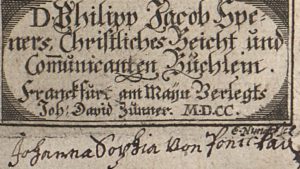 D. Philipp Jacob Spe-
ners, Christliches Beicht und
Com̄unicanten Büchlein.
Franckfurt am Mayn Verlegts
Joh: David Zunner. M.DCC.
Johanna Sophia von Ponickau